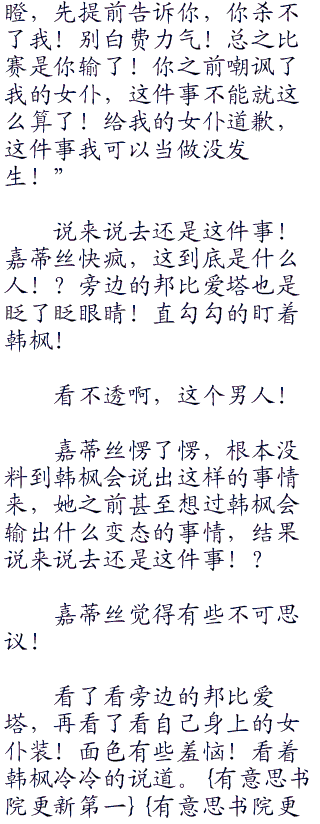 瞪，先提前告诉你，你杀不
了我！别白费力气！总之比
赛是你输了！你之前嘲讽了
我的女仆，这件事不能就这
么算了！给我的女仆道歉，
这件事我可以当做没发
生！”
说来说去还是这件事！
嘉蒂丝快疯，这到底是什么
人！？旁边的邦比爱塔也是
眨了眨眼睛！直勾勾的盯着
韩枫！
看不透啊，这个男人！
嘉蒂丝愣了愣，根本没
料到韩枫会说出这样的事情
来，她之前甚至想过韩枫会
输出什么变态的事情，结果
说来说去还是这件事！？
嘉蒂丝觉得有些不可思
议！
看了看旁边的邦比爱
塔，再看了看自己身上的女
仆装！面色有些羞恼！看着
韩枫冷冷的说道。{有意思书
院更新第一}{有意思书院更